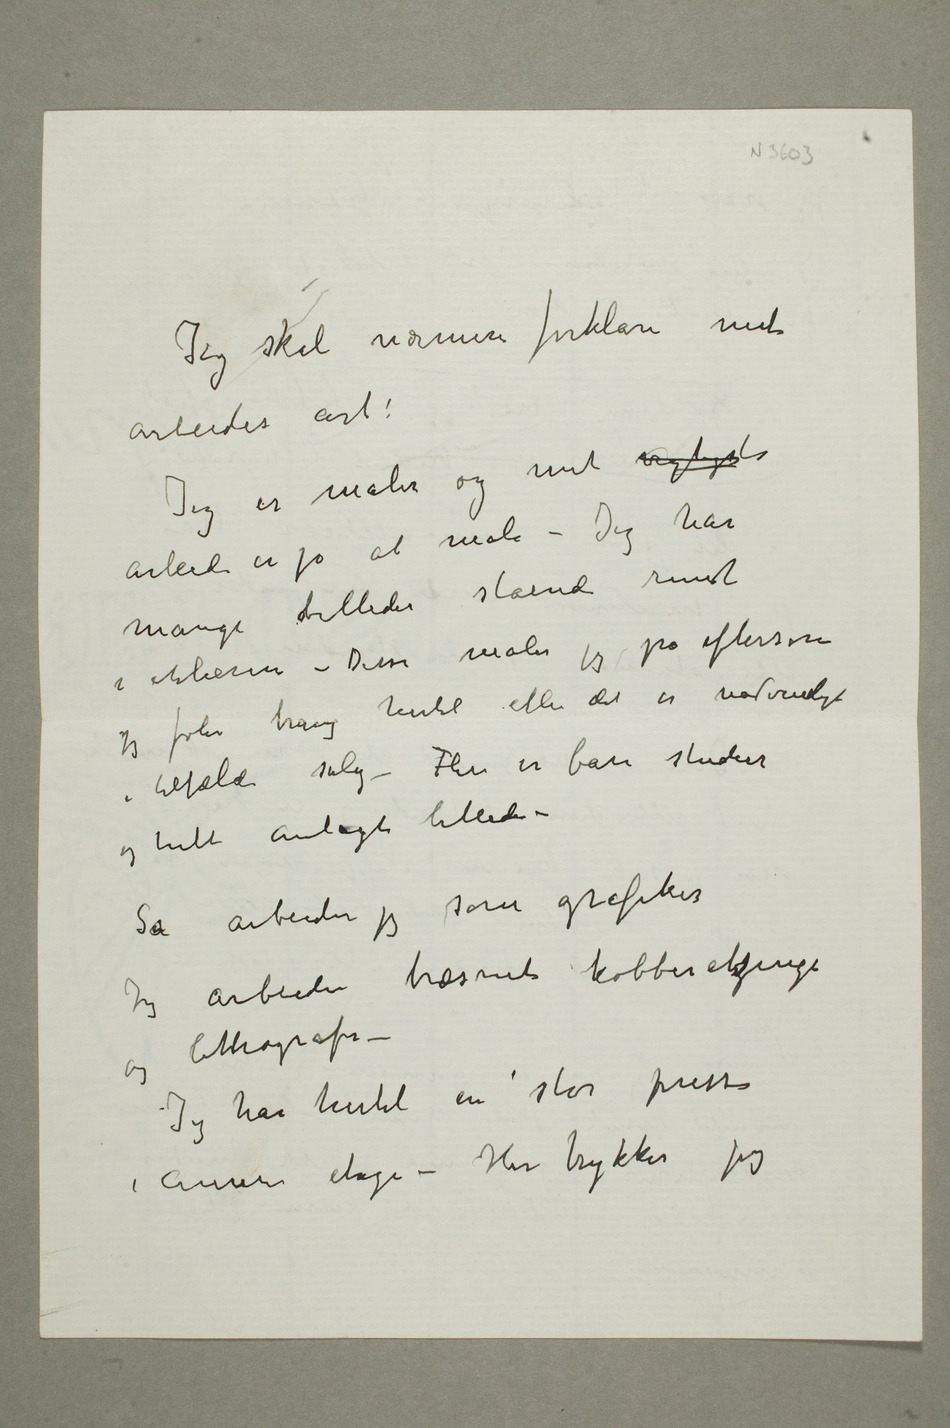 N 3603
Jeg skal nærmere forklare mit
arbeides art!
Jeg er maler og mit vigtigste
arbeide er jo at male – Jeg har
mange billeder staaende rundt
i atelierene – Disse maler jeg på eftersom
jeg føler trang hertil eller det er nødvendigt
i tilfælde salg – Flere er bare studier
og helt anlagte billeder –
Så arbeider jeg som grafiker
Jeg arbeider træsnit kobberætzninge
og lithografi –
Jeg har hertil en stor presse
i annen etage – Her trykker jeg